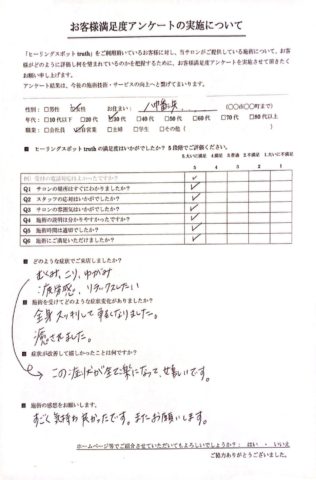 お客様満足度アンケートの実施について
「ヒーリングスポットtruth」をご利用頂いているお客様に対し、当サロンがご提供している施術について、お客
様がどのように評価し何を望まれているのかを把握するために、お客様満足度アンケートを実施させて頂きたく
お願い申し上げます。
アンケート結果は、今後の施術技術・サービスの向上へと繋げてまいります。
性別:□男性 □女性 お住まい: (〇〇市〇〇町まで)
年代:□10代以下 □20代 □30代 □40代 □50代 □60代 □70代 □80代以上
職業:□会社員 □自営業 □主婦 □学生 □その他( )
■ ヒーリングスポットtruthの満足度はいかがでしたか?5段階でご評価ください。
5.大いに満足 4.満足 3.普通 2.不満足 1.大いに不満足
例)受付の電話対応は良かったですか?
5 4 3 2 1
Q1 サロンの場所はすぐにわかりましたか?
Q2 スタッフの応対はいかがでしたか?
Q3 サロンの雰囲気はいかがでしたか?
Q4 施術の説明は分かりやすかったですか?
Q5 施術時間は適切でしたか?
Q6 施術にご満足いただけましたか?
■ どのような症状でご来店しましたか?
むくみ、こり、ゆがみ
疲労感、リラックスしたい
■ 施術を受けてどのような症状変化がありましたか?
全身スッキリして軽くなりました。
癒されました。
■ 症状が改善して嬉しかったことは何ですか?
この症状が全て楽になって、嬉しいです。
■ 施術の感想をお願いします。
すごく気持ち良かったです。またお願いします。
ホームページ等でご紹介させていただいてもよろしいでしょうか?: はい ・ いいえ
ご協力ありがとうございました。